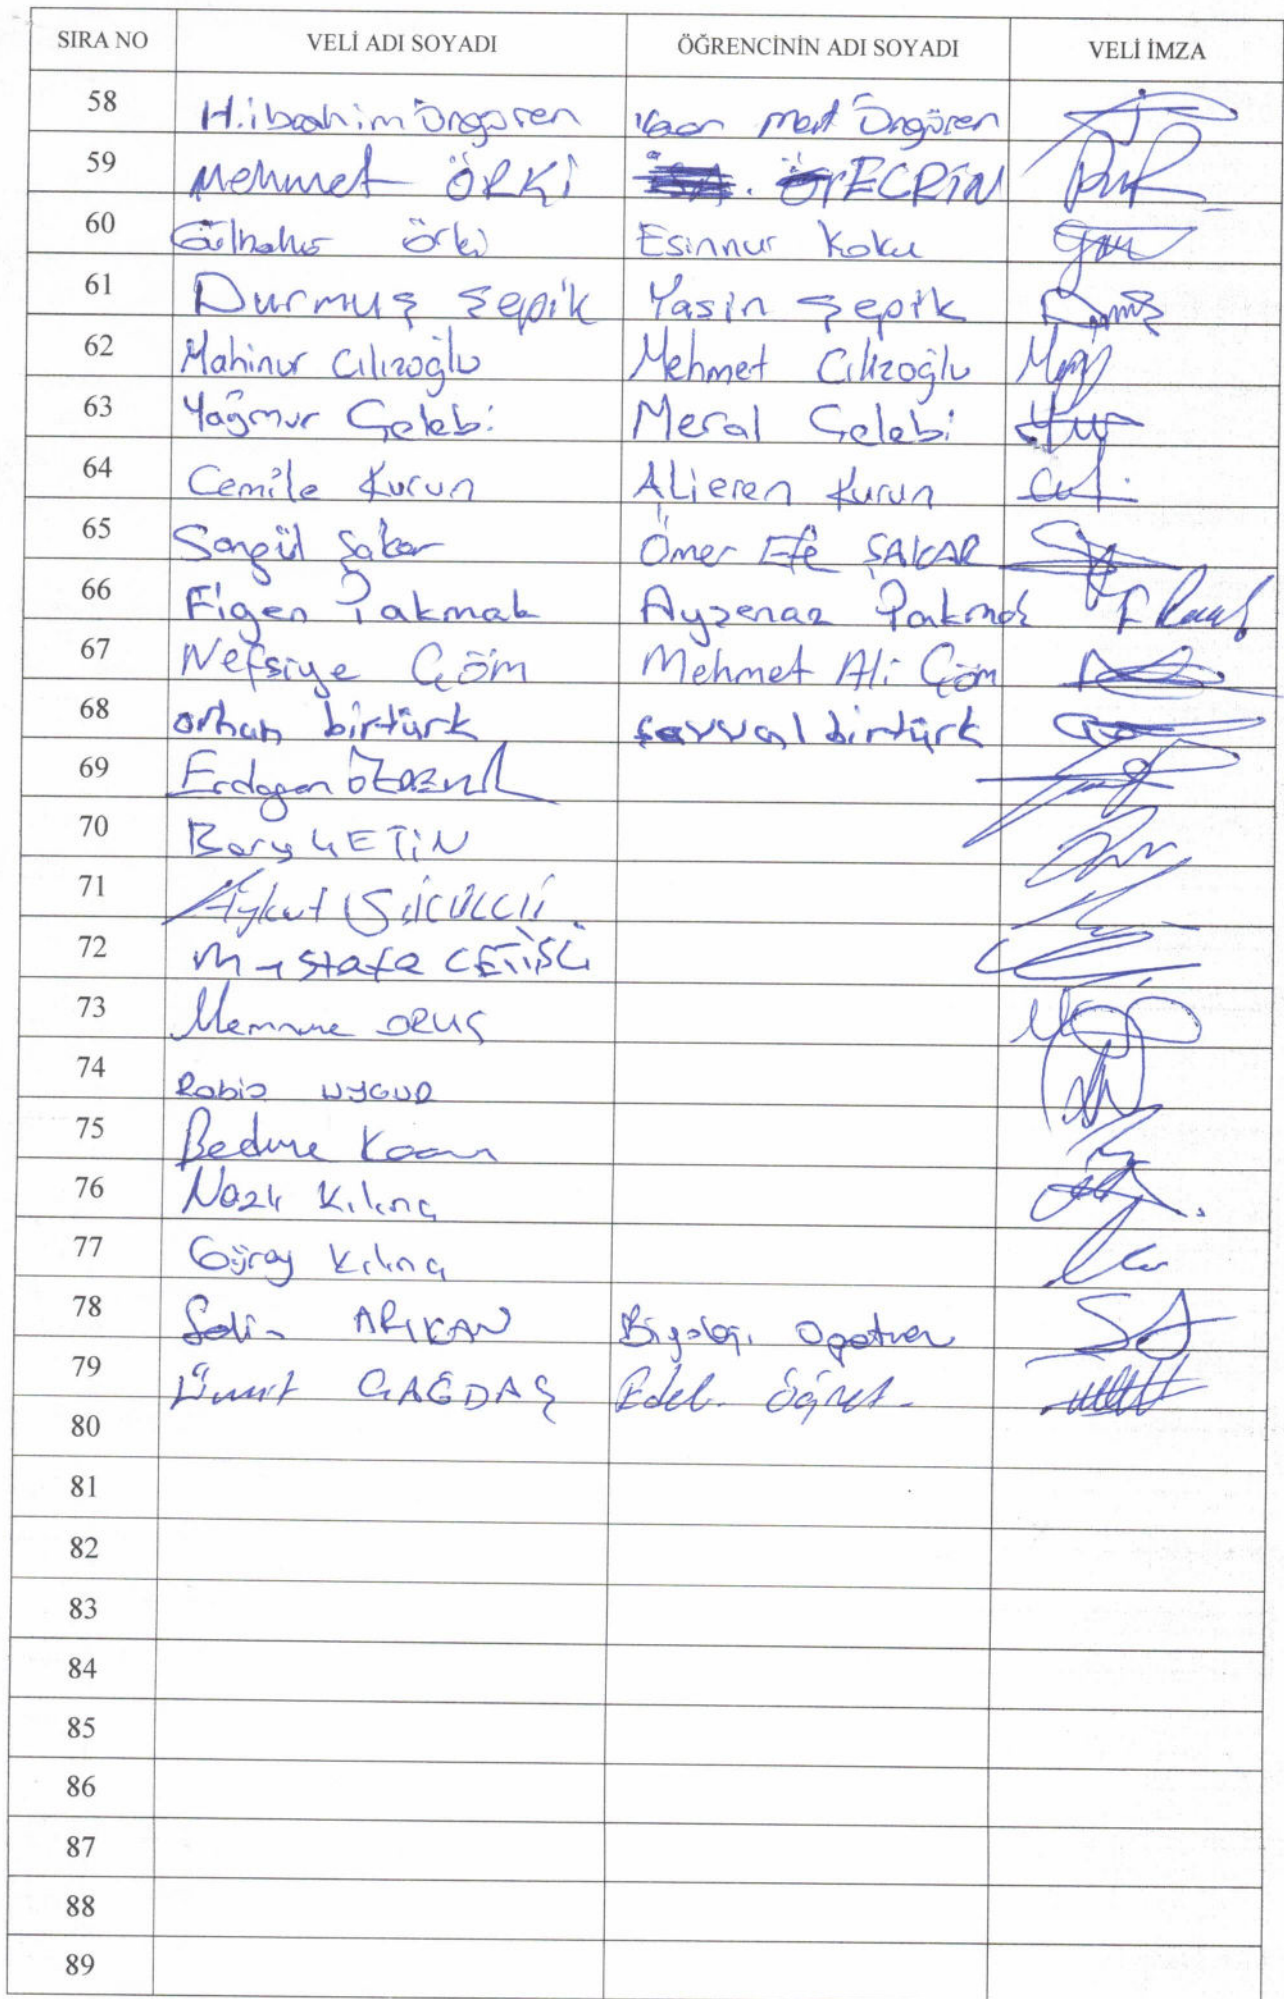 SIRA NO VELİ ADI SOYADI ÖĞRENCİNİN ADI SOYADI VELİ İMZA
58 H.ibrahim Öngören Mert Öngören
59 Mehmet ÖRKİ ECRİN
60 Örki Esinnur Koku
61 Durmuş Şepik Yasin Şepik
62 Mahinur Cılızoğlu Mehmet Cılızoğlu
63 Yağmur Çelebi Meral Çelebi
64 Cemile Kurun Alieren Kurun
65 Songül Şakar Ömer Efe ŞAKAR
66 Figen Pakmak Ayşenaz Pakmak
67 Nefsiye Çöm Mehmet Ali Çöm
68 orhan birtürk şevval birtürk
69 Erdogan
70 Barış ÇETİN
71 Aykut
72 Mustafa
73 ORUÇ
74 Rabia UYGUR
75 Bedine
76 Nazlı Kılınç
77 Güray Kılınç
78 ARIKAN
79 Ümit ÇAĞDAŞ Edeb. Öğret.
80
81
82
83
84
85
86
87
88
89